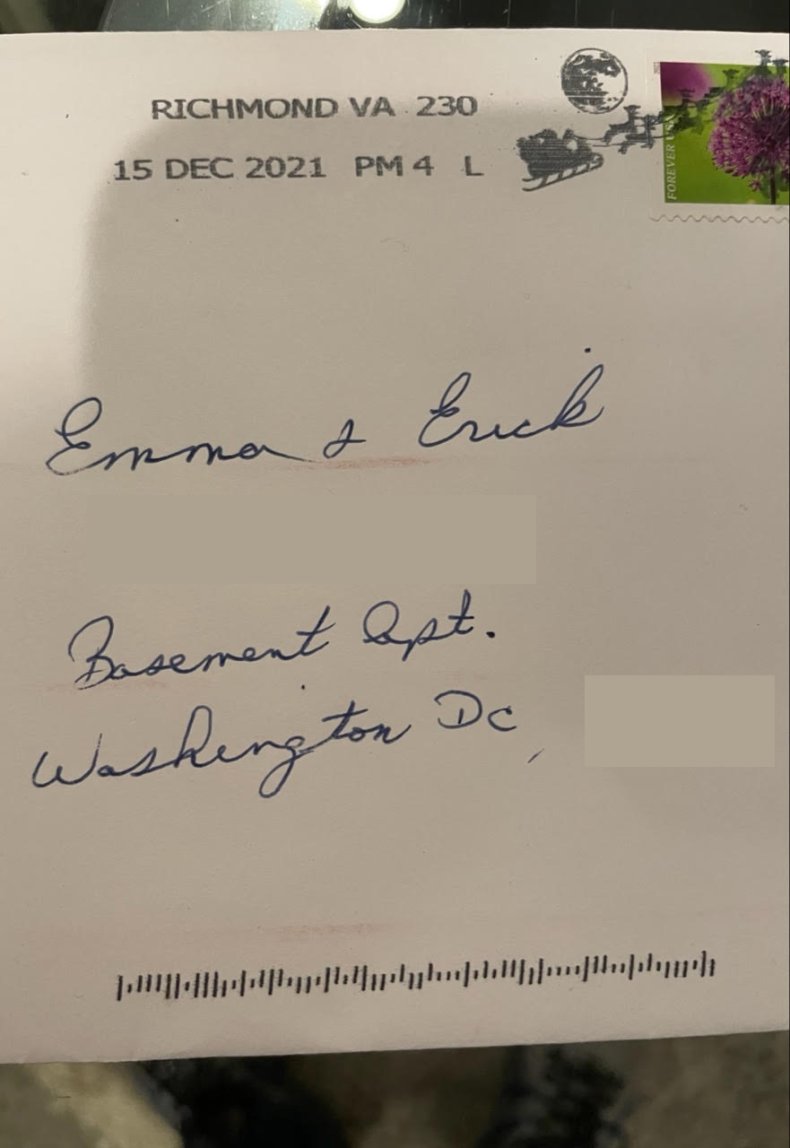 RICHMOND VA 230
15 DEC 2021 PM 4 L
FOREVER
Emma & Erick
Basement Apt.
Washington DC,